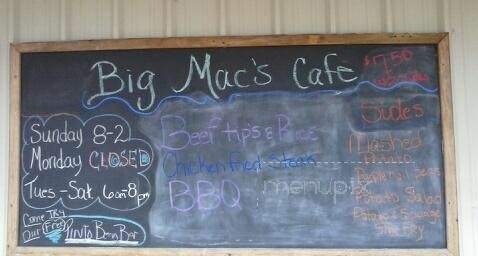 Big Mac's Cafe
$7.50
Sunday 8-2
Monday CLOSED
Tues-Sat. 6am 8pm
Come Try
Our Free Pinto Bean Bar
Beef tips & Rice
Chicken fried Steak
BBQ
Sides
Mashed
Potato
Potato Salad
Potato & Sausage
Stir Fry
menupix